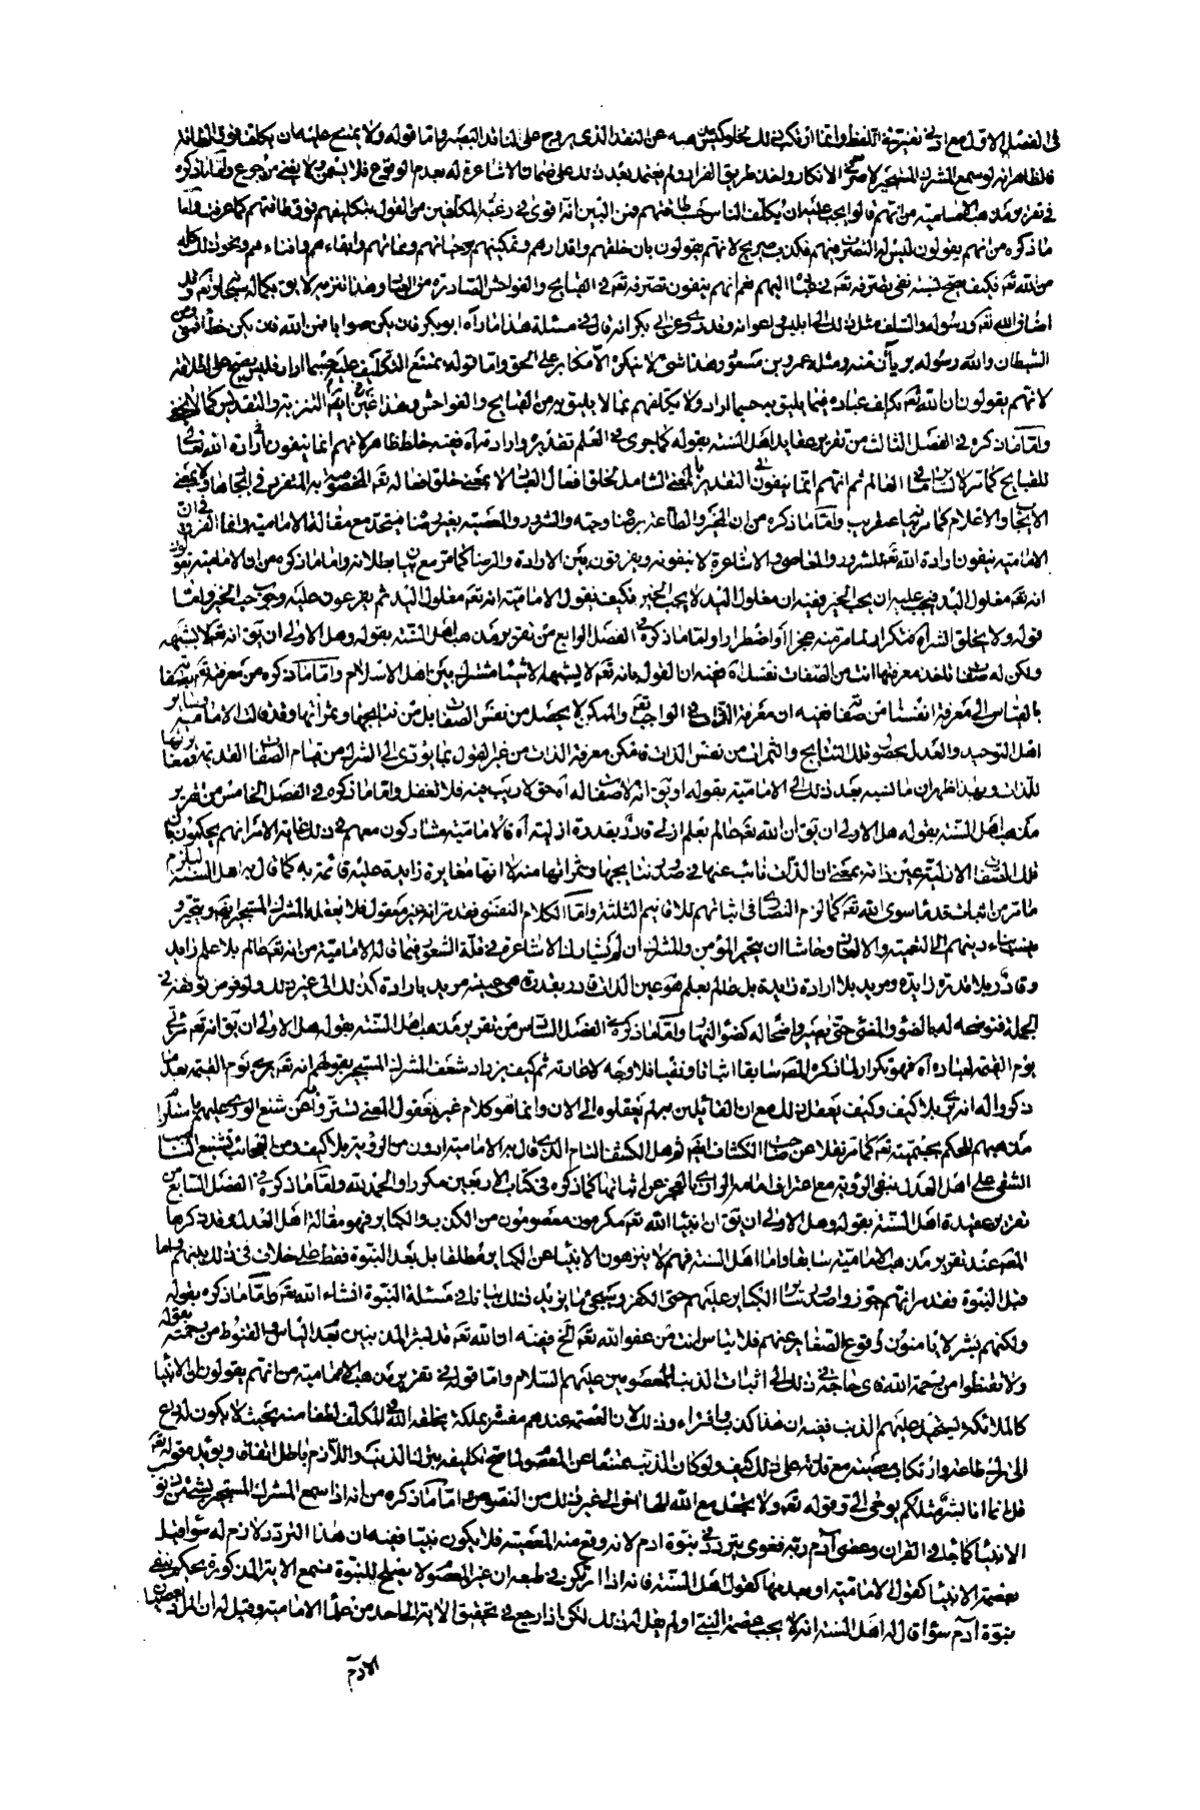 في الفصل الاول مع ادنى تغيير في اللفظ وانما ارتكب ذلك عن النقد الذي يروج على الناقد البصير واما قوله ولا يمتنع عليه ان يكلف فوق الطاقة
فالظاهر انه لو سمع المشرك المستجير الانكار واخذ طريق الفرار ولم يعتمد بعد ذلك على ضمان الاشاعرة له بعدم الوقوع فلا يسمن ولا يغني من جوع واما ما ذكره
في تقرير مذهب الامامية من انهم قالوا يجب عليه ان يكلف الناس حسب طاقتهم فمن البين انه اقوى في رغبة المكلفين من القول بتكليفهم فوق طاقتهم كما عرفت واما
ما ذكره من انهم يقولون ليس له التصرف فيهم فكذب صريح لانهم يقولون بان خلقهم واقدارهم وتمكينهم وحياتهم ومماتهم وابقاءهم وافناءهم ونحو ذلك كله
من الله تعه فكيف يصح نسبة نفي تصرفه تعه في اليهم نعم انهم ينفون تصرفه تعه في القبايح والفواحش الصادرة من العباد وهذا تنزيه لايق بكماله سبحانه وتعه وقد
اضاف الله تعه ورسوله والسلف مثل ذلك الى ابليس واعوانه وقد روي عن ابي بكر انه قال في مسئلة هذا ما رآه ابو بكر فان يكن صوابا فمن الله وان يكن خطأ فمني ومن
الشيطان والله ورسوله بريئان منه ومثله عمرو بن مسعود وهذا شئ لا ينكره الا مكابر على الحق واما قوله يمتنع التكليف عليه حسبما اراد فليس يصح على اطلاقه
لانهم يقولون ان الله تعه يكلف عباده فيما يليق به حسبما اراد ولا يكلفهم بما لا يليق به من القبايح والفواحش وهذا عين التنزيه والتقديس كما لا يخفى
واما ما ذكره في الفصل الثالث من تقرير عقايد اهل السنة بقوله كما جرى في العلم تقديره وارادته آه ففيه خلط ظاهر لانهم انما ينفون ارادة الله تعالى
للقبايح كما مر لا العالم ثم انهم انما ينفون التقدير بالمعنى الشامل لخلق افعال العباد لا بمعنى خلق افعاله تعه المخصوصة به المتفرد في ايجادها ولا بمعنى
الايجاب والاعلام كما مر عنقريب واما ما ذكره من ان الخير والطاعة برضا وحبه والشرور والمعصية بغير رضا فمتحد مع مقالة الامامية وانما الفرق في ان
الامامية ينفون ارادة الله تعه للشرور والمعاصي والاشاعرة لا ينفونه ويفرقون بين الارادة والرضا كما مر مع بيان بطلانه واما ما ذكره من ان الامامية يقولون
انه تعه مغلول اليد فيجب عليه ان يحب الخير وفيه ان مغلول اليد لا يجب الخير فكيف يقول الامامية انه تعه مغلول اليد ثم يفرعون عليه وجوب الخير واما
قوله ولا يخلق الشر آه فتكرار لما مر منه عجزا او اضطرارا واما ما ذكره في الفصل الرابع من تقرير مذهب اهل السنة بقوله وهل الاولى ان يق انه تعه لا يشبهه
ولكن له صفات تاخذ معرفتها انت من الصفات نفسك آه ففيه ان القول بانه تعه لا يشبهه الاشيا مشترك بين اهل الاسلام واما ما ذكره من معرفة تعه بصفا
بالقياس الى معرفة انفسنا من صفاتنا ففيه ان معرفة الذات في الواجب تعه والممكن لا يحصل من نفس الصفات بل من نتايجها وثمراتها وقد قالت الامامية
اهل التوحيد والعدل بحصول تلك النتايج والثمرات من نفس الذات فامكن معرفة الذات من غير القول بما يؤدى الى الشرك من قيام الصفات القديمة
للذات وبهذا ظهر ان ما نسبه بعد ذلك الى الامامية بقوله او يق انه لا صفات له آه حق لا ريب فيه فلا تغفل واما ما ذكره في الفصل الخامس من تقرير
مذهب اهل السنة بقوله هل الاولى ان يق ان الله تعه عالم بعلم ازلي قادر بقدرة ازلية آه فالامامية مشاركون معهم في ذلك غاية الامر انهم يحكمون بان
تلك الصفات الازلية عين ذاته بمعنى ان الذات نائب عنها في صدور نتايجها وثمراتها منه لا انها مغايرة زايدة عليه قائمة به كما قال به اهل السنة ليلزم
ما مر من اثبات قدماء سوى الله تعه كما لزم النصارى في اثباتهم للاقانيم الثلثة واما الكلام النفسي فقد مر انه غير معقول فلا يفعله المشرك المستجير ايضا ويتحير
دينهم الى التعمية والالغاز وحاشا ان يتحير المؤمن والمشرك ان لم يشارك الاشاعرة في قلة الشعور فيما قاله الامامية من انه تعه عالم بلا علم زايد
وقادر بلا قدرة زايدة ومريد بلا ارادة زايدة بل عالم بعلم هو عين الذات قادر بقدرة هي عينه مريد بارادة كذلك الى غير ذلك ولو فرض توقفه في
الجملة فنوضحه له بالضوء والمضئ حتى يصير واضحا له كضوء النهار واما ما ذكره في الفصل السادس من تقرير مذهب اهل السنة بقوله هل الاولى ان يق انه تعه مرئي
يوم القيمة لعباده آه فهو تكرار لما ذكره المصه سابقا اثباتا ونفيا فلا وجه لاعادته ثم كيف يزداد شغف المشرك المستجير بقولهم انه تعه يرى يوم القيمة بعد ما
ذكروا له انه يرى بلا كيف وكيف يعقل ذلك مع ان القائلين به لم يعقلوه الى الان وانما هو كلام غير معقول المعنى تستروا به عن شنع الورى عليهم باستلزام
مذهبهم للحكم بجسميته تعه كما مر نقلا عن صاحب الكشاف نعم هل الكشف التام الذي قال به الامامية ادون من الرؤية بلا كيف ومن العجائب تشنيع الناصب
الشقي على اهل العدل بنفي الرؤية مع اعتراف امامه الرازي بالعجز عن اثباتها كما ذكره في كتاب الاربعين مكررا والحمد لله واما ما ذكره في الفصل السابع من
تقرير عقيدة اهل السنة بقوله وهل الاولى ان يق ان انبيا الله تعه مكرمون معصومون من الكذب والكباير فهو مقالة اهل العدل وقد ذكرها
المصه عند تقرير مذهب الامامية سابقا واما اهل السنة فهم لا ينزهون الانبيا عن الكباير مطلقا بل بعد النبوة فقط على خلاف في ذلك بينهم واما
قبل النبوة فقد مر انهم جوزوا صدور ساير الكباير عليهم حتى الكفر وسيجئ ما يزيد لذلك بيانا في مسئلة النبوة انشاء الله تعه واما ما ذكره بقوله
ولكنهم بشر لا يامنون وقوع الصغاير عنهم فلا تياس انت من عفو الله تعه الخ ففيه ان الله تعه قد بشر المذنبين بعدم الياس والقنوط من رحمته بقوله
ولا تقنطوا من رحمة الله فاي حاجة في ذلك الى اثبات الذنب للمعصومين عليهم السلام واما قوله في تقرير مذهب الامامية من انهم يقولون ان الانبيا
كالملائكة يستحيل عليهم الذنب ففيه ان هذا كذب وافتراء وذلك لان العصمة عندهم مفسر بملكة يخلقه الله في المكلف لطفا منه بحيث لا يكون له داع
الى ترك طاعة وارتكاب معصية مع قدرته على ذلك كيف ولو كان الذنب ممتنعا عن المعصوم لما صح تكليفه بترك الذنب واللازم باطل اتفاقا ويؤيده قوله تعه
قل انما انا بشر مثلكم يوحى الى وقوله تعه ولا تجعل مع الله الها آخر الى غير ذلك من النصوص واما ما ذكره من انه اذا سمع المشرك المستجير
الانبيا كما جاء في القران وعصى آدم ربه فغوى يتردد في نبوة ادم لانه وقع منه المعصية فلا يكون نبيا ففيه ان هذا التردد لازم له سواء قيل
بعصمة الانبيا كقول الامامية او بعدمها كقول اهل السنة فانه اذا ارتكز في طبعه ان غير المعصوم لا يصلح للنبوة فيسمع الاية المذكورة يحكم بنفي
نبوة آدم سواء قال له اهل السنة انه لا يجب عصمة النبي او لم يقل له ذلك لكن اذا رجع في تحقيق الاية الى احد من علماء الامامية وقيل له ان المراد
الادم